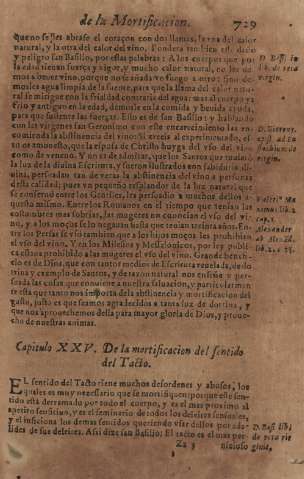 de la Mortificacion. 729
que no se les abrase el coraçon con dos llamas, la vna del calor
natural, y la otra del calor del vino. Pondera tambien este daño
y peligro san Basilio, por estas palabras: A los cuerpos que por
la edad tienen fuerça y vigor, y mucho calor natural, no les demos
a beuer vino, porque no se añada vn fuego a otro; sino demosles
agua limpia de la fuente, para que la llama del calor natural
se mitigue con la frialdad contraria del agua: mas al cuerpo ya
frio y antiguo en la edad, demosle en la comida y beuida ayuda,
para que sustente las fuerças. Esto es de san Basilio: y hablando
con las virgenes san Geronimo con este encarecimiento las encomienda
la abstinencia del vino: Si creeis al experimentado, esto
os amonesto, que la esposa de Christo huyga del vso del vino
como de veneno. Y no es de admirar, que los Santos que tenian
la luz de la diuina Escritura, y fueron ilustrados con sabiduria diuina,
persuadan tan de veras la abstinencia del vino a personas
desta calidad; pues vn pequeño resplandor de la luz natural que
se conseruò entre los Gentiles, les persuadio a muchos dellos aquesto
mismo. Entre los Romanos en el tiempo que tenian las
costumbres mas sobrias, las mugeres no conocian el vso del vino,
y a los moços se lo negauan hasta que tenian treinta años. Entre
los Persas se vio tambien que a los hijos moços les prohibian
el vso del vino. Y en los Milesios y Messilonicos, por ley publica
estaua prohibido a las mugeres el vso del vino. Grande beneficio
es de Dios, que con tantos medios de Escritura reuelada, de dotrina
y exemplo de Santos, y de razon natural nos enseñe y persuada
las cosas que conuiene a nuestra saluacion, y particularmente
esta que tanto nos importa dela abstinencia y mortificacion del
gusto, justo es que seamos agradecidos a tanta luz de dotrina, y
que nos aprouechemos della para mayor gloria de Dios, y prouecho
de nuestras animas.
D. Basil.
lib. de vera
virgin.
D. Hieron.
ad Eustochium
de
virgin.
Valeri° Maximus
lib. 2
cap. 1.
Alexander
ab Alexad.
lib. 2.
Capitulo XXV. De la mortificacion del sentido
del Tacto.
EL sentido del Tacto tiene muchos desordenes y abusos, los
quales es muy necessario que se mortifiquen: porque este sentido
està derramado por todo el cuerpo, y es el mas proximo al
apetito sensitiuo, y es el seminario de todos los deleites sensuales,
y el inficiona los demas sentidos queriendo vsar dellos por adalides
de sus deleites. Assi dize san Basilio: El tacto es el mas per-
D. Basil lib.
de vera vir
ginit.
Zz 3 nicioso